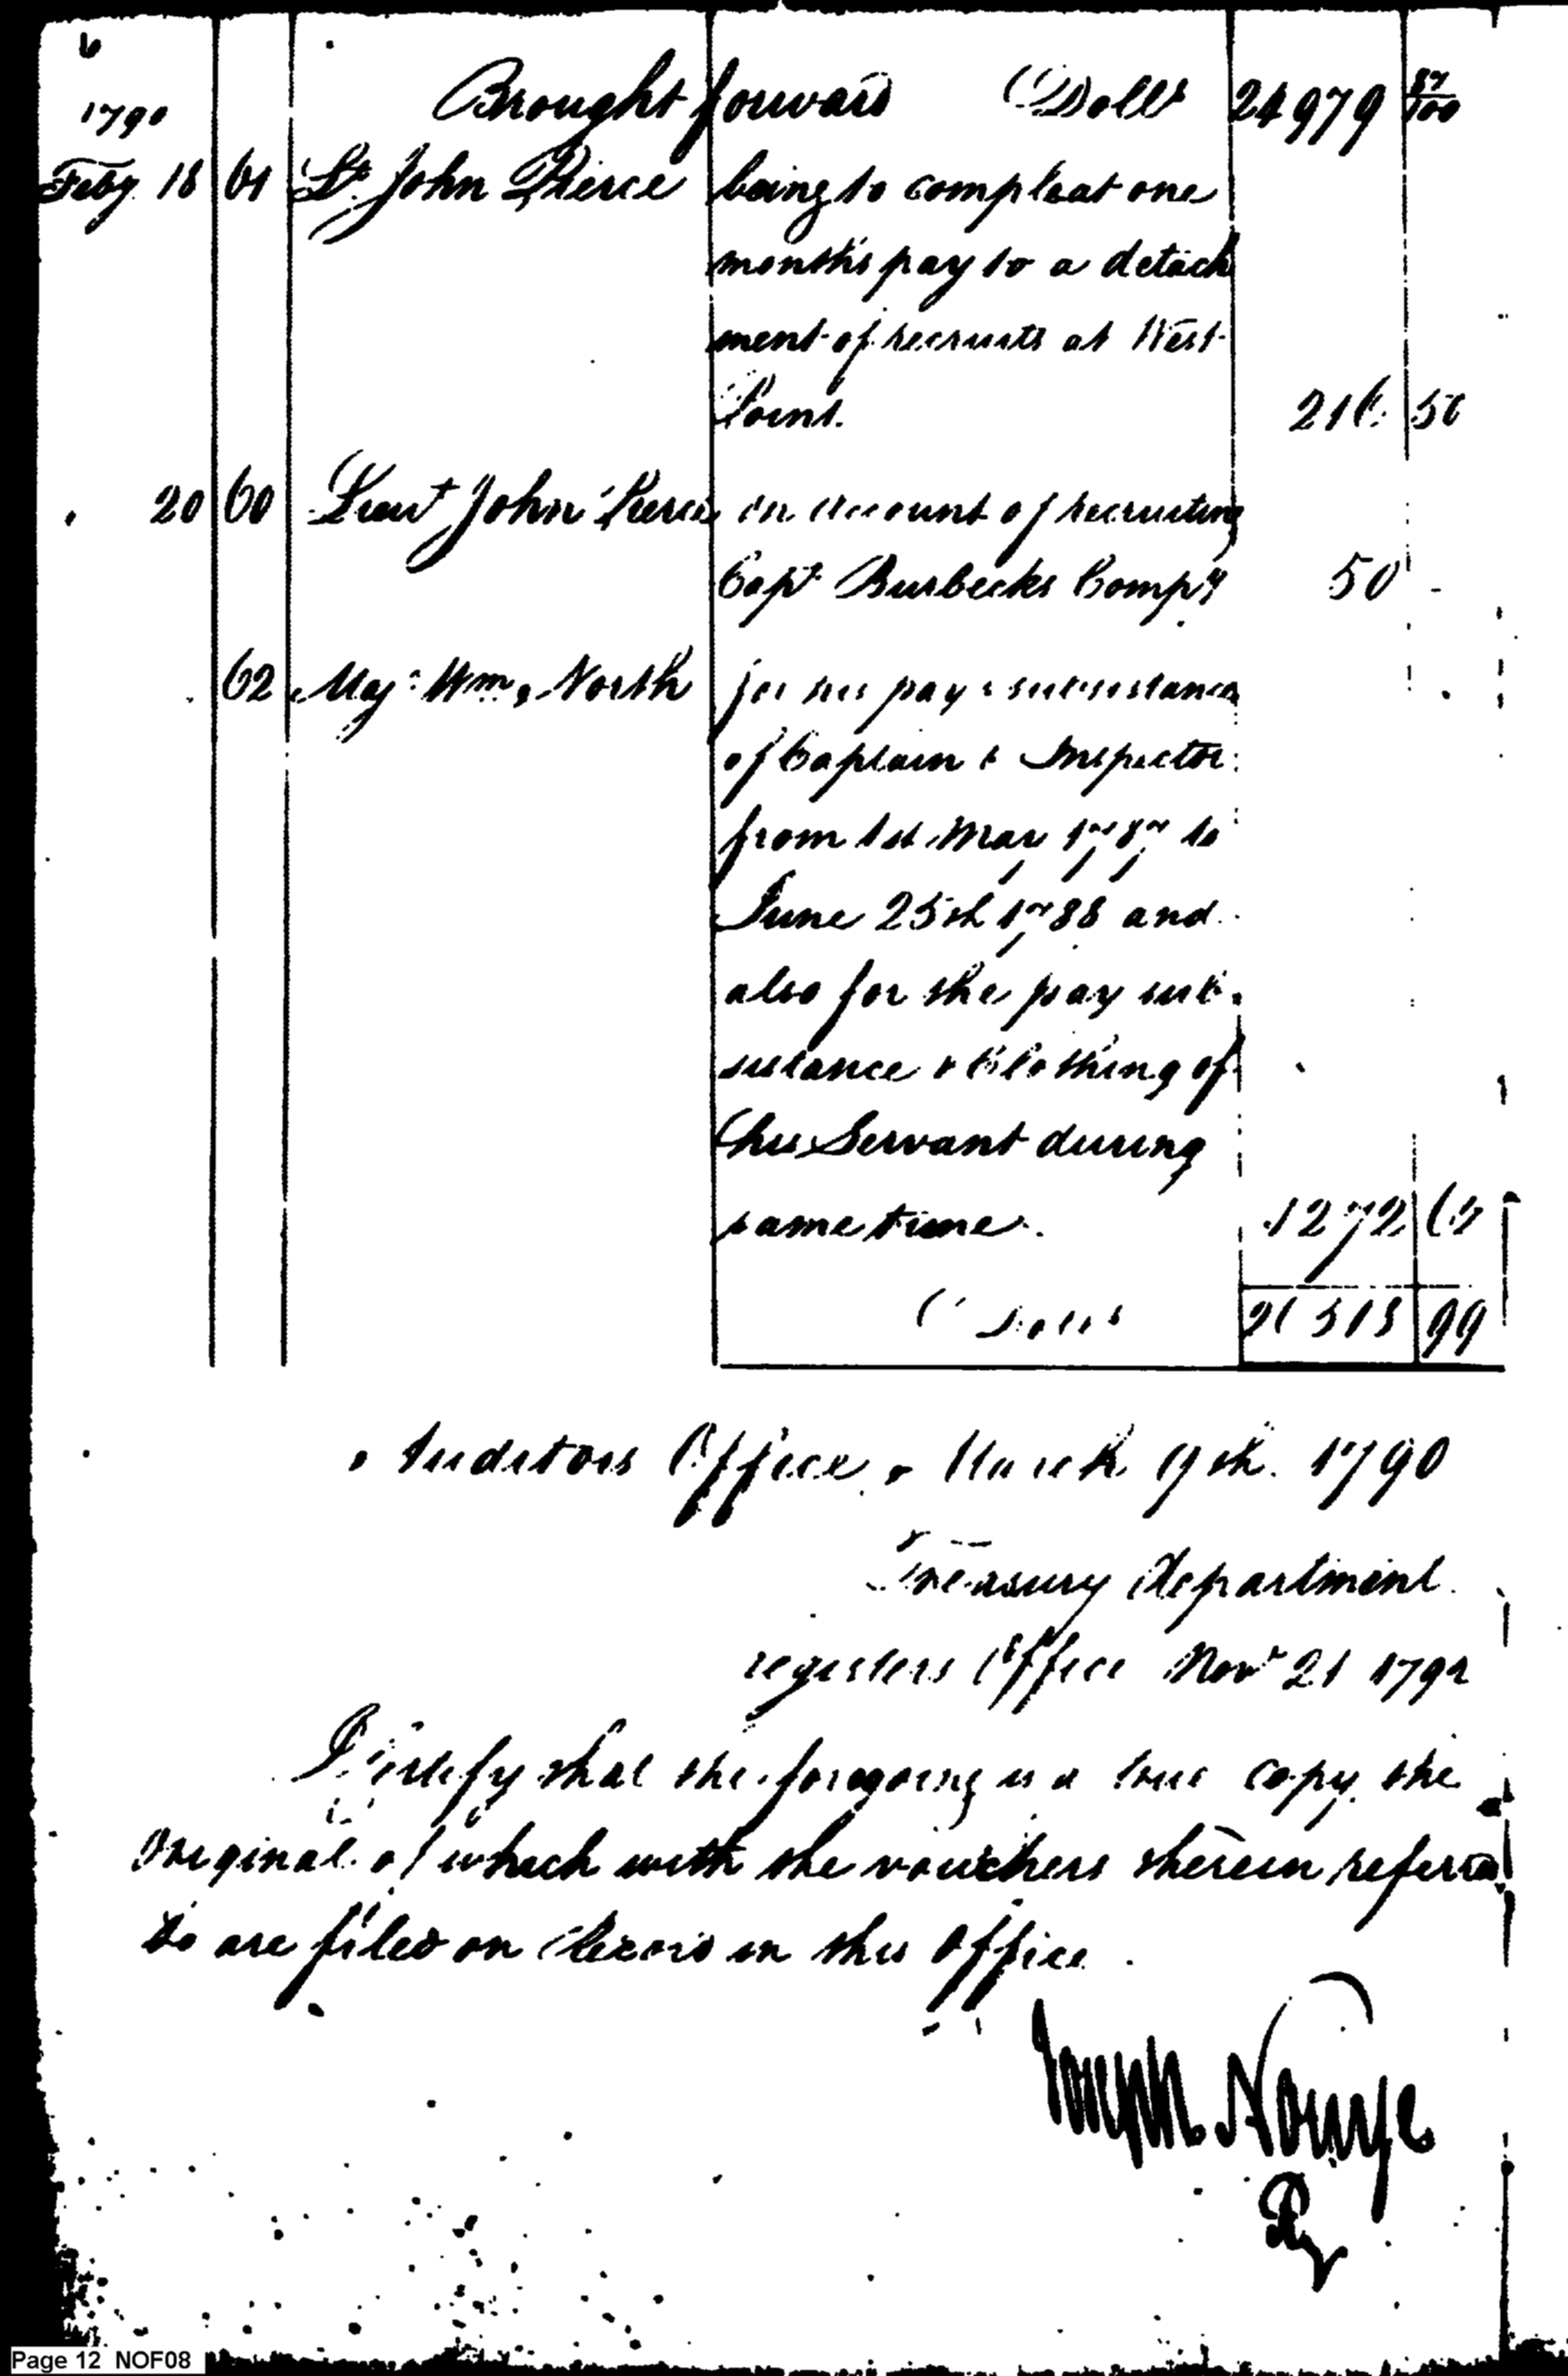 6
Brought forward Dolls 24979 87/100
1790
Feby. 18 61 Lt. John Pierce being to compleat one
months pay to a detach
ment of recruits at West
Point. 216 50
20 60 Lieut John Pierce on account of recruiting
Capt Burbecks Compy 50 -
62 Maj: Wm. North for his pay & subsistance
of Captain & Inspector
from 1st May 1787 to
June 25th 1788 and
also for the pay sub
sistance & Clothing of
his Servant during
same time. 1272 62
Dolls 26518 99
Auditors Office March 9th. 1790
Treasury department
registers Office Novr 21 1792
I Certify that the foregoing is a true copy the
Original of which with the vouchers therein referred
to are filed on Record in this Office.
Joseph Nourse
Rg
Page 12 NOF08